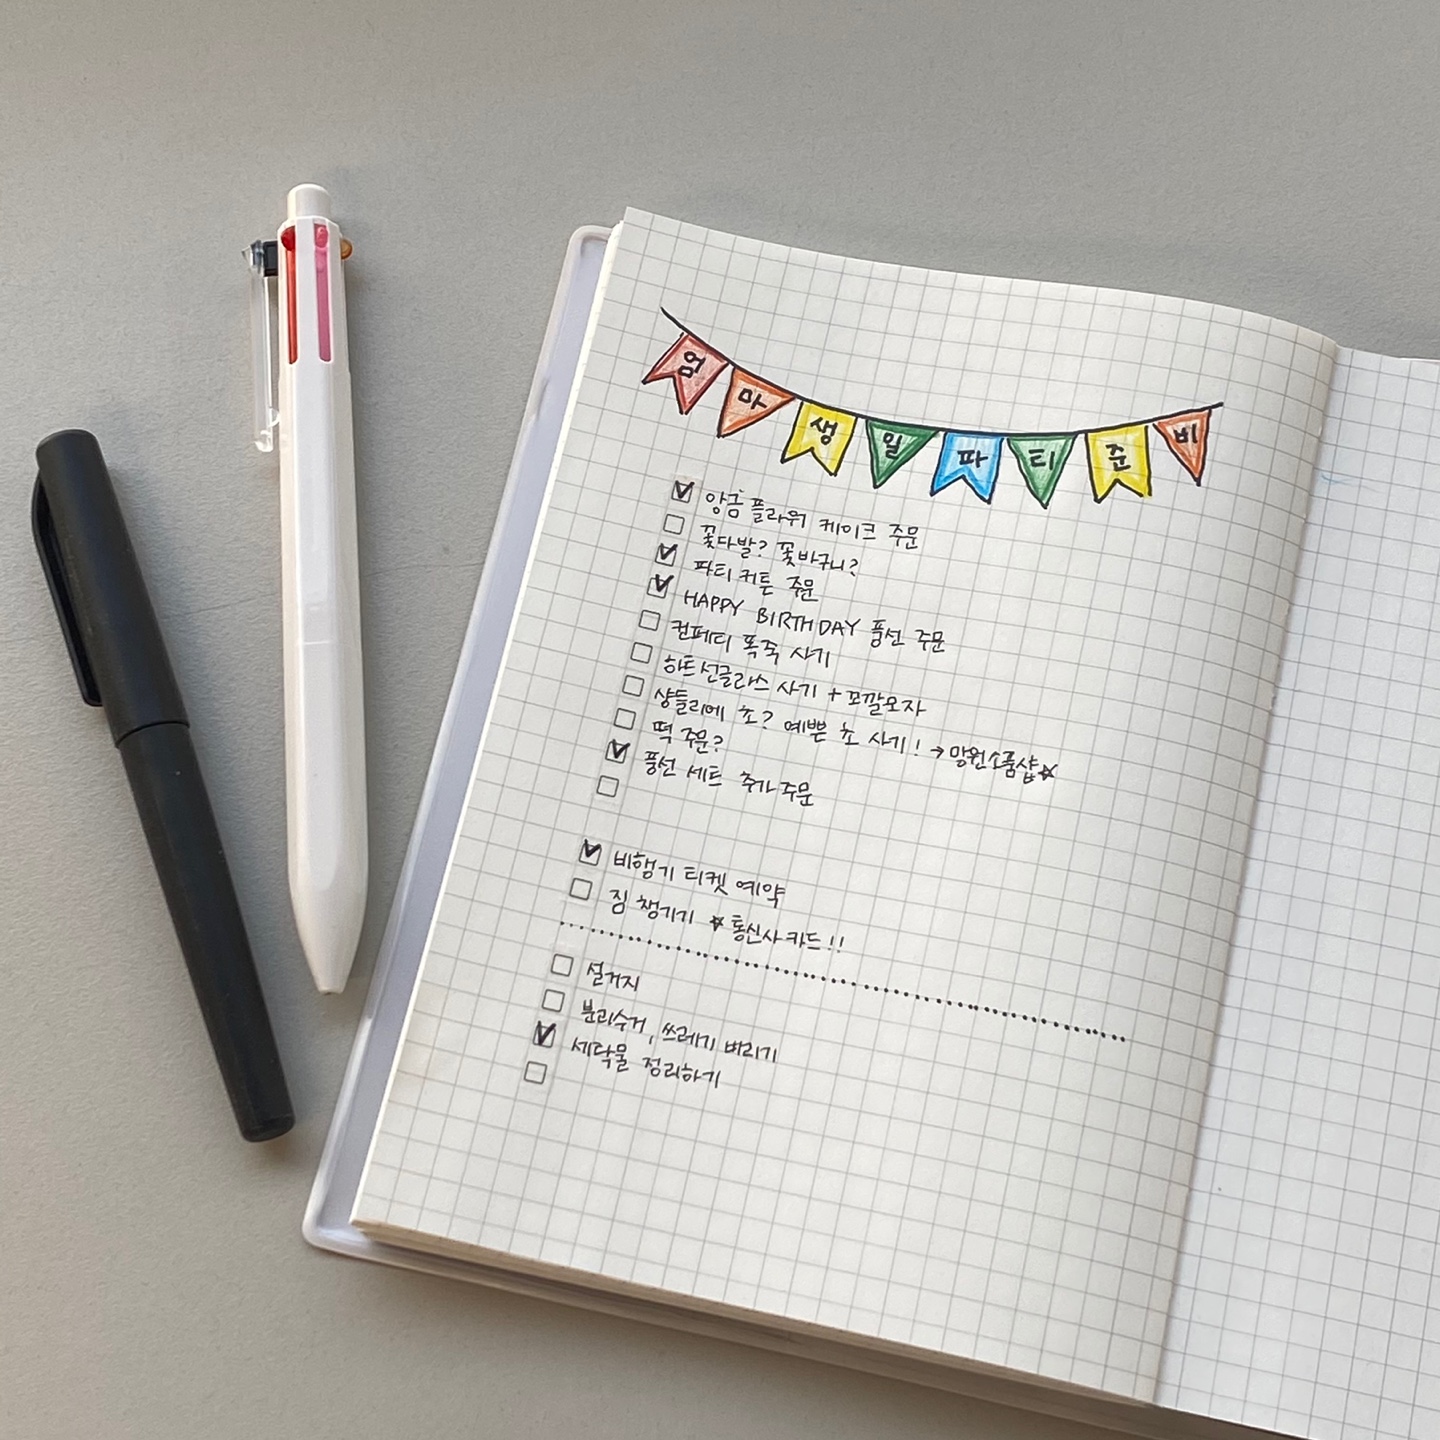 엄마생일파티준비
앙금플라워 케이크 주문
꽃다발? 꽃바구니?
파티커튼 주문
HAPPY BIRTHDAY 풍선 주문
컨페티 폭죽 사기
하트선글라스 사기 + 꼬깔모자
샹들리에 초? 예쁜 초 사기! → 망원소품샵☆
떡 주문?
풍선 세트 추가주문
비행기 티켓 예약
짐 챙기기 ☆통신사카드!!
설거지
분리수거, 쓰레기 버리기
세탁물 정리하기